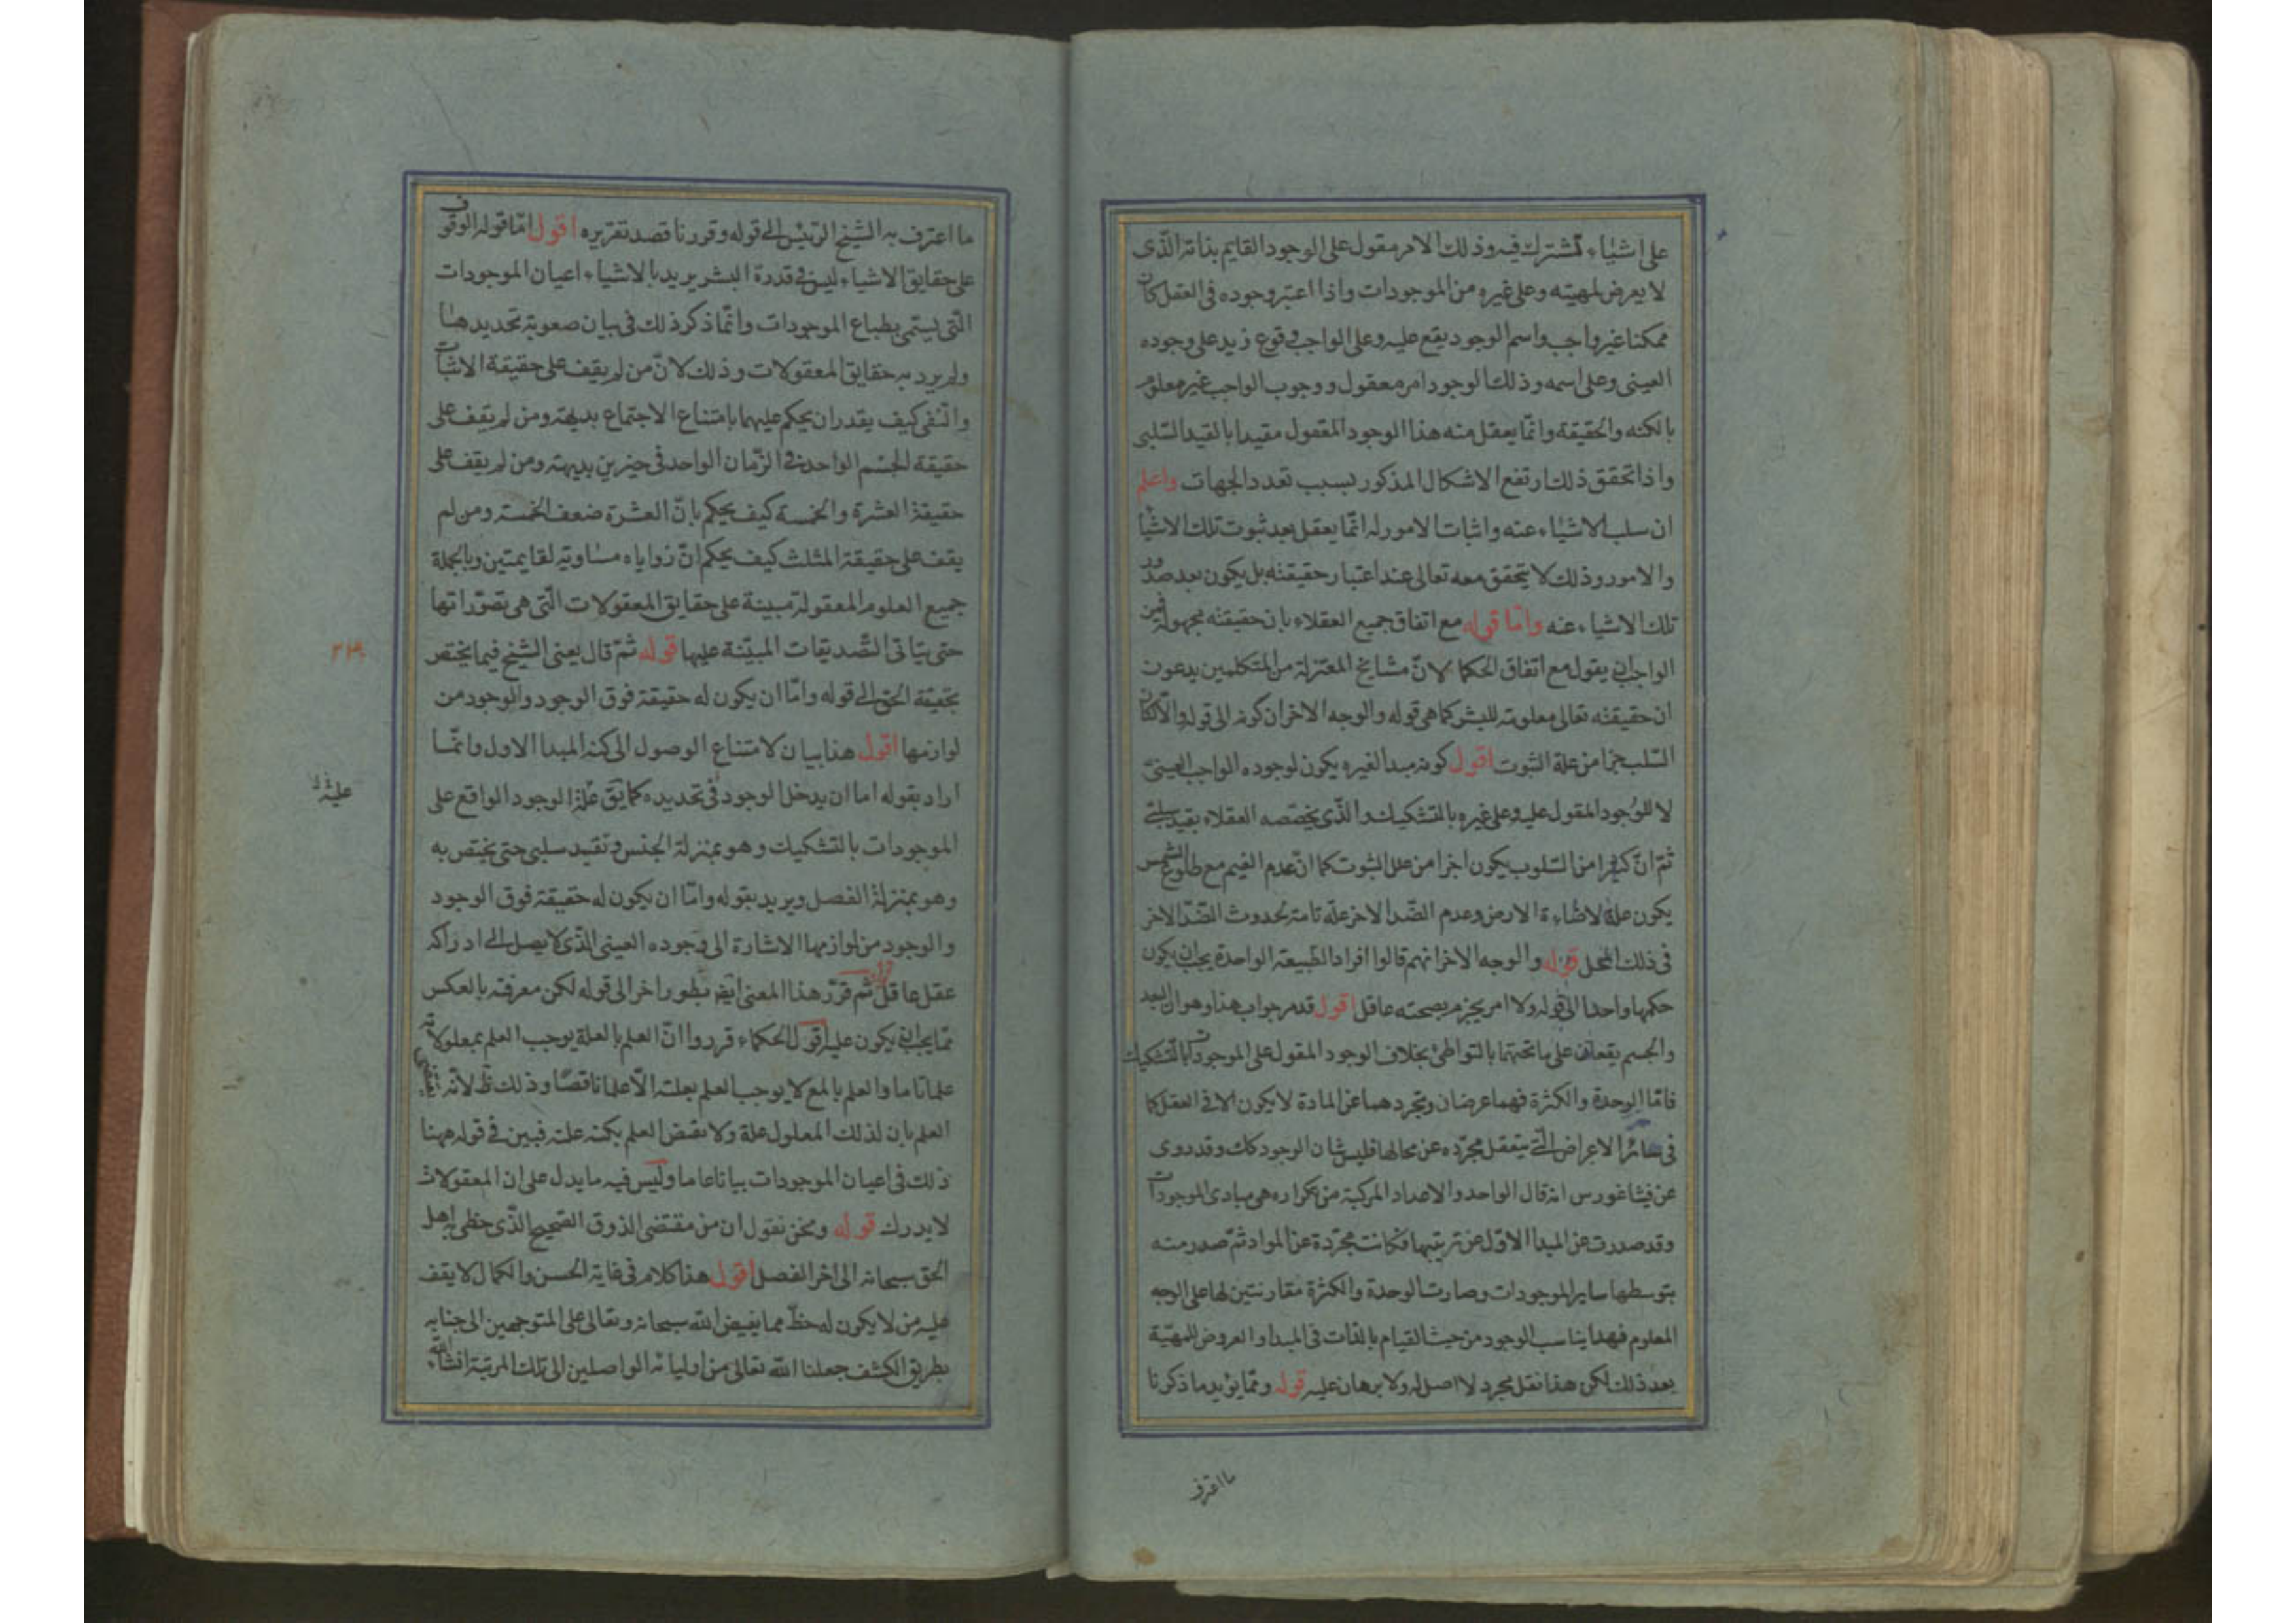 على اشياء تشترك فيه وذلك الامر مقول على الوجود القايم بذاته الذى
لا يعرض لمهيته وعلى غيره من الموجودات واذا اعتبر وجوده فى العقل كان
ممكنا غير واجب واسم الوجود يقع عليه وعلى الواجب وقوع زيد على وجوده
العينى وعلى اسمه وذلك الوجود امر معقول ووجوب الواجب غير معلوم
بالكنه والحقيقة وانما يعقل منه هذا الوجود المعقول مقيدا بالقيد السلبى
واذا تحقق ذلك ارتفع الاشكال المذكور بسبب تعدد الجهات واعلم
ان سلب الاشياء عنه واثبات الامور له انما يعقل بعد ثبوت تلك الاشيا
والامور وذلك لا يتحقق معه تعالى عند اعتبار حقيقته بل يكون بعد صدور
تلك الاشياء عنه واما قوله مع اتفاق جميع العقلاء بان حقيقته مجهولة فمن
الواجب ان يقول مع اتفاق الحكما لانّ مشايخ المعتزلة من المتكلمين يدعون
ان حقيقته تعالى معلومة للبشر كما هى قوله والوجه الاخر ان كونه الى قوله والا لكان
السلب جزا من علة الثبوت اقول كونه مبدا لغيره يكون لوجوده الواجب العينىّ
لا للوجود المقول عليه وعلى غيره بالتشكيك والذى يخصصه العقلاء بقيد سلبى
ثم انّ كثيرا من السلوب يكون اجزا من علل الثبوت كما انّ عدم الغيم مع طلوع الشمس
يكون علة لاضاءة الارض وعدم الضد الاخر علة تامة لحدوث الضد الاخر
فى ذلك المحل قوله والوجه الاخر انهم قالوا افراد الطبيعة الواحدة يجب ان يكون
حكمها واحدا الى قوله ولا امر يجزم بصحته عاقل اقول قد مر جواب هذا وهو ان البعد
والجسم يقعان على ما تحتهما بالتواطئ بخلاف الوجود المقول على الموجودات بالتشكيك
فامّا الوحدة والكثرة فهما عرضان وتجردهما عن المادة لا يكون الا فى العقل كما
فى سائر الاعراض التى يتعقل مجرّده عن محالها فليس شان الوجود كك وقد روى
عن فيثاغورس انه قال الواحد والاعداد المركبة من تكراره هى مبادى الموجودات
وقد صدرت عن المبدا الاوّل عن ترتيبها فكانت مجرّدة عن المواد ثم صدر منه
بتوسطها ساير الموجودات وصارت الوحدة والكثرة مقارنتين لها على الوجه
المعلوم فهذا يناسب الوجود من حيث القيام بالذات فى المبدا والعروض للمهيّة
بعد ذلك لكن هذا نقل مجرد لا اصل له ولا برهان عليه قوله ومما يؤيد ما ذكرنا
ما اعترف
ما اعترف به الشيخ الرئيس الى قوله وقورنا قصد تقريره اقول امّا قوله الوقوف
على حقايق الاشياء ليس فى قدرة البشر يريد بالاشياء اعيان الموجودات
التى يسمى بطباع الموجودات وانّما ذكر ذلك فى بيان صعوبة تحديدها
ولم يرد به حقايق المعقولات وذلك لانّ من لم يقف على حقيقة الاثبات
والنفى كيف يقدر ان يحكم عليهما بامتناع الاجتماع بديهة ومن لم يقف على
حقيقة الجسم الواحد فى الزمان الواحد فى حيزين بديهة ومن لم يقف على
حقيقة العشرة والخمسة كيف يحكم بانّ العشرة ضعف الخمسة ومن لم
يقف على حقيقة المثلث كيف يحكم انّ زواياه مساوية لقايمتين وبالجملة
جميع العلوم المعقولة مبينة على حقايق المعقولات التى هى تصوّراتها
حتى يتاتى التصديقات المبيّنة عليها قوله ثم قال يعنى الشيخ فيما يختص
بحقيقة الحق الى قوله وامّا ان يكون له حقيقة فوق الوجود والوجود من
لوازمها اقول هذا بيان لامتناع الوصول الى كنه المبدا الاول وانّما
اراد بقوله اما ان يدخل الوجود فى تحديده كما يق علة الوجود الواقع على
علية
الموجودات بالتشكيك وهو بمنزلة الجنس وتقيد سلبى حتى يختص به
وهو بمنزلة الفصل ويريد بقوله وامّا ان يكون له حقيقة فوق الوجود
والوجود من لوازمها الاشارة الى وجوده العينى الذى لا يصل الى ادراكه
عقل عاقل قوله ثم قرّر هذا المعنى ايض بطور اخر الى قوله لكن معرفته بالعكس
ممّا يجب ان يكون عليه اقول الحكماء قرروا انّ العلم بالعلة يوجب العلم بمعلولاته
علما تاما والعلم بالمع لا يوجب العلم بعلته الّا علما ناقصًا وذلك ظ لانّه يقتضى
العلم بان لذلك المعلول علة ولا يقتض العلم بكنه علته فبين فى قوله ههنا
ذلك فى اعيان الموجودات بيانا عاما وليس فيه ما يدل على ان المعقولات
لا يدرك قوله ونحن نقول ان من مقتضى الذوق الصحيح الذّى حظى به اهل
الحق سبحانه الى اخر الفصل اقول هذا كلام فى غاية الحسن والكمال لا يقف
عليه من لا يكون له حظّ مما يفيض الله سبحانه وتعالى على المتوجهين الى جنابه
بطريق الكشف جعلنا الله تعالى من اوليائه الواصلين الى تلك المرتبة انشاء الله